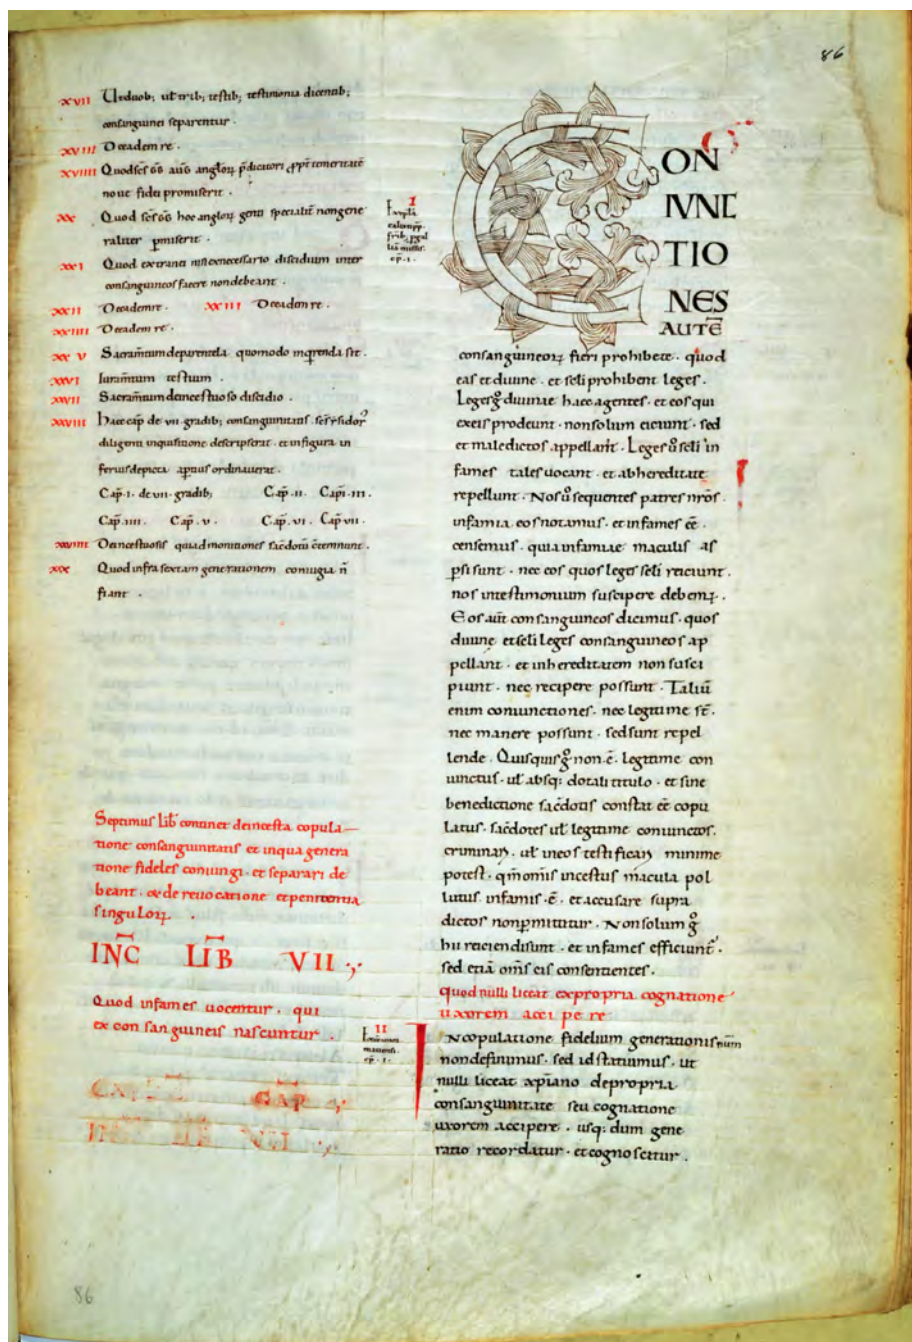 86
XVII Ut eduob; ul' trib; testib; testimonia dicentib;
consanguinei separentur .
XVIII De eadem re .
XVIIII
noue fidei promiserit .
XX Quod hoc angloꝝ genti non gene
raliter pmiserit .
XXI Quod extranei discidium inter
consanguineos facere non debeant .
XXII De eadem re . XXIII De eadem re .
XXIIII De eadem re .
XXV Sacram̄tum de parentela quomodo sit .
XXVI Iuram̄tum testium .
XXVII Sacram̄tum de incestuoso discidio .
XXVIII Haec cap̄ de vii gradib; consanguinitatis
diligenti inquisitione descripserat . et in figura in
ferius depicta ordinauerat .
Cap̄ . i . de vii . gradib; Cap̄ . ii . Cap̄ . iii .
Cap̄ . iiii . Cap̄ . v . Cap̄ . vi . Cap̄ vii .
XXVIIII De incestuosis qui admonitiones sac̄dotū c̄temnunt .
XXX Quod infra sextam generationem coniugia n̄
fiant .
Septimus lib̄ continet de incesta copula
tione consanguinitatis et in qua genera
tione fideles coniungi . et separari de
beant . & de reuocatione et penitentia
singuloꝝ .
INC̄ LIB̄ VII
Quod infames uocentur . qui
ex consanguineis nascuntur .
CAP̄
I
CON
IVNC
TIO
NES
AUTĒ
consanguineoꝝ fieri prohibete . quod
eas et diuine . et s̄c̄li prohibent leges .
Leges g° diuinae haec agentes . et eos qui
ex eis prodeunt . non solum eiciunt . sed
et maledictos appellant . Leges u° s̄c̄li in
fames tales uocant . et ab hereditate
repellunt . Nos u° sequentes patres nr̄os .
infamia eos notamus . et infames ēē .
censemus . quia infamiae maculis as
psi sunt . nec eos quos leges s̄c̄li reiciunt .
nos in testimonium suscipere debemꝰ .
Eos aūt consanguineos dicimus . quos
diuine et s̄c̄li leges consanguineos ap
pellant . et in hereditatem non susci
piunt . nec recipere possunt . Taliū
enim coniunctiones . nec legitime st̄ .
nec manere possunt . sed sunt repel
lende . Quisquis g° non ē . legitime con
iunctus . ul' absq; dotali titulo . et sine
benedictione sac̄dotis constat ēē copu
latus . sac̄dotes ul' legitime coniunctos .
criminari . ul' in eos testificari minime
potest . qm̄ om̄is incestus macula pol
lutus infamis . ē . et accusare supra
dictos non pmittitur . Non solum g°
hii reiciendi sunt . et infames efficiunt' .
sed etiā om̄s eis consentientes .
quod nulli liceat ex propria cognatione
uxorem accipere
II
IN copulatione fidelium generationis num̄
non definimus . sed id statuimus . ut
nulli liceat xp̄iano de propria
consanguinitate seu cognatione
uxorem accipere . usq; dum gene
ratio recordatur . et cognoscitur .
86